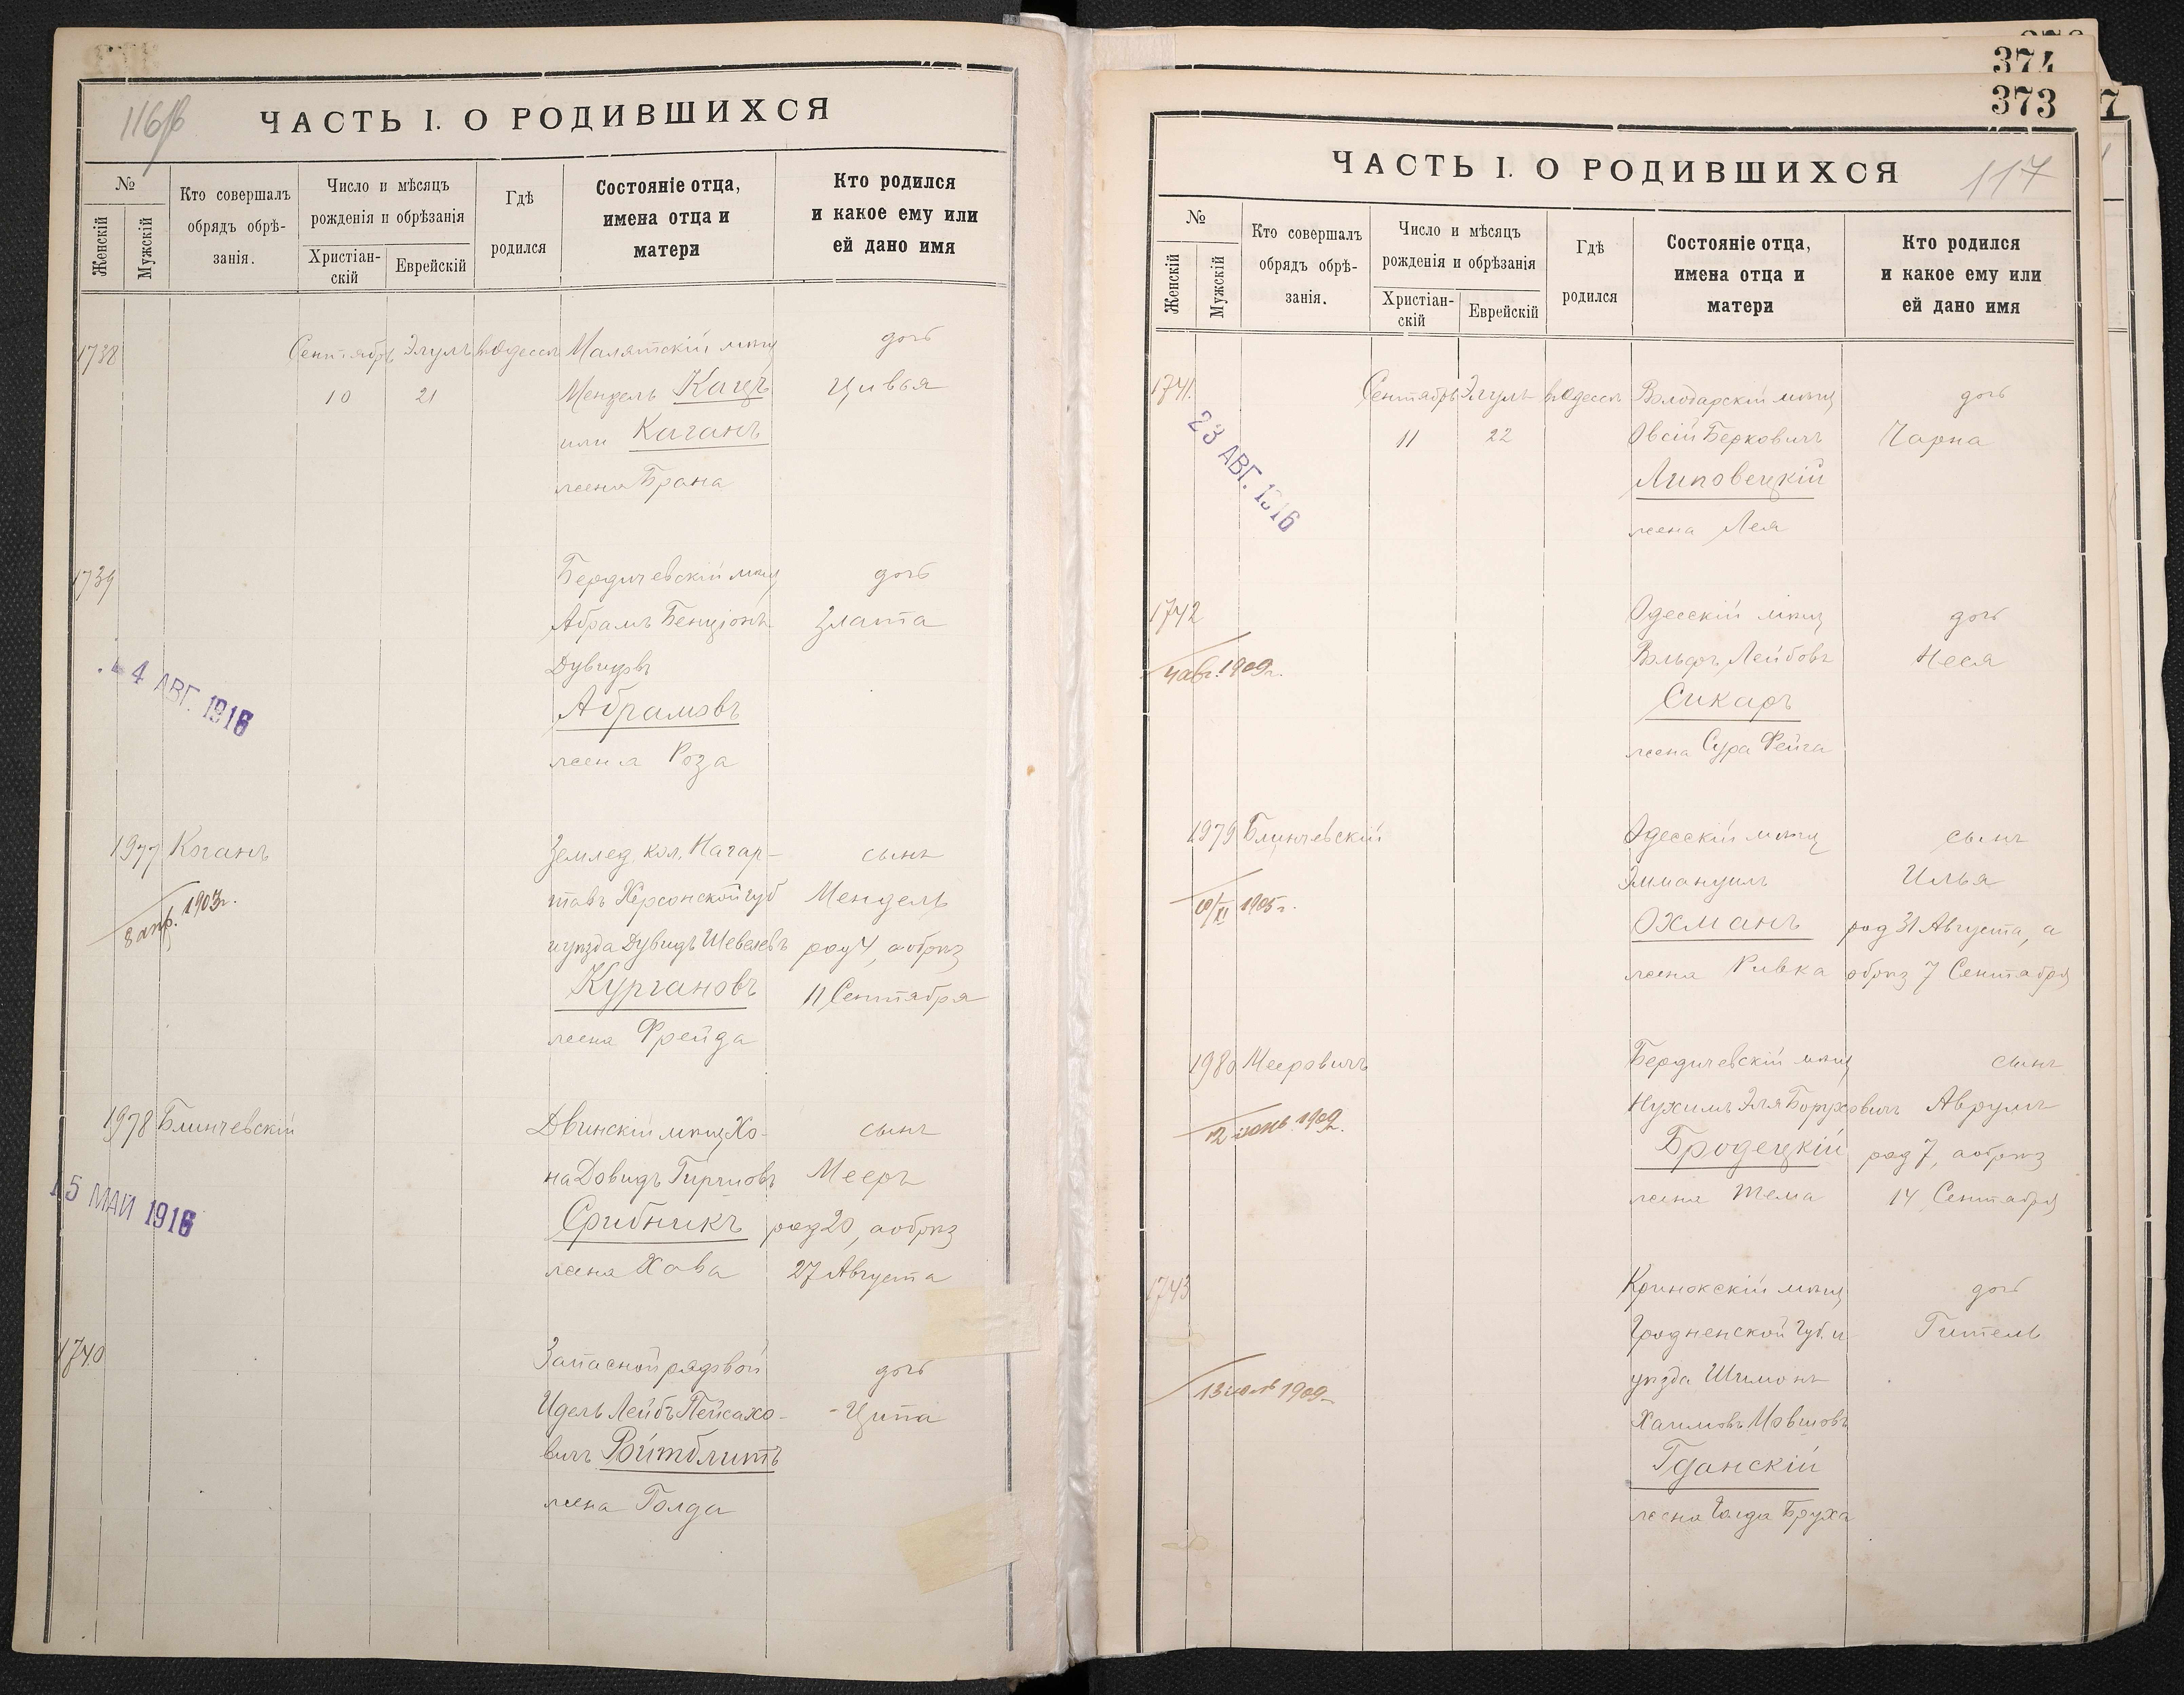 116об
ЧАСТЬ I. О РОДИВШИХСЯ
№
Женскій
Мужскій
Кто совершалъ
обрядъ обрѣ-
занія.
Число и мѣсяцъ
рожденія и обрѣзанія
Христіан-
скій
Еврейскій
Гдѣ
родился
Состояніе отца,
имена отца и
матери
Кто родился
и какое ему или
ей дано имя
1738 Сентябрь Элулъ въ Одессѣ Малятскій мѣщ дочь
10 21 Мендель Кацъ Цивья
или Каганъ
жена Брана
1739 Бердичевскій мѣщ дочь
Абрамъ Бенціонъ Злата
Дувидовъ
4 АВГ. 1916
Абрамовъ
жена Роза
1977 Коганъ Землед. кол. Нагар- сынъ
тавъ Херсонской губ Мендель
8 апр. 1903г.
и уѣзда Дувидъ Шевелевъ род 4, а обрѣз
Кургановъ 11 Сентября
жена Фрейда
1978 Блинчевскій Двинскій мѣщ Хо- сынъ
на Довидъ Гиршовъ Мееръ
15 МАЙ 1916
Срибникъ род 20, а обрѣз
жена Хава 27 Августа
1740 Запасной рядовой дочь
Идель Лейбъ Пейсахо- Ципа
вичъ Ройтблитъ
жена Голда
374
373
ЧАСТЬ I. О РОДИВШИХСЯ
117
№
Женскій
Мужскій
Кто совершалъ
обрядъ обрѣ-
занія.
Число и мѣсяцъ
рожденія и обрѣзанія
Христіан-
скій
Еврейскій
Гдѣ
родился
Состояніе отца,
имена отца и
матери
Кто родился
и какое ему или
ей дано имя
1741 Сентябрь Элулъ въ Одессѣ Володарскій мѣщ дочь
11 22 Овсій Берковичъ Чарна
23 АВГ. 1916
Липовецкій
жена Лея
1742 Одесскій мѣщ дочь
Вольфъ Лейбовъ Неся
4 авг. 1909г.
Сикаръ
жена Сура Фейга
1979 Блинчевскій Одесскій мѣщ сынъ
Эммануилъ Илья
10/XI 1905г.
Охманъ род 31 Августа, а
жена Ривка обрѣз 7 Сентября
1980 Мееровичъ Бердичевскій мѣщ сынъ
Нухимъ Эля Боруховичъ Аврумъ
12 іюнь 1902.
Бродецкій род 7, а обрѣз
жена Тема 14 Сентября
1743 Кринокскій мѣщ дочь
Гродненской Губ. и Гитель
уѣзда Шимонъ
13 іюль 1909
Хаимовъ Мовшовъ
Гданскій
жена Голда Бруха